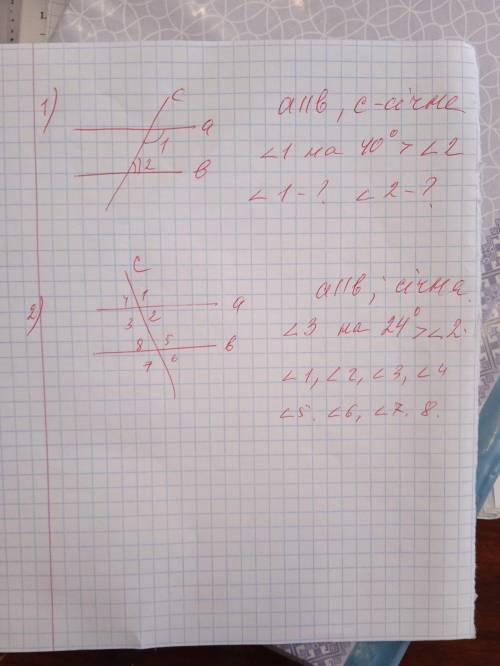 1)
c
a
1
2
в
a||в, c-січна
∠1 на 40° > ∠2
∠1-? ∠2-?
2)
c
4 1
a
3 2
8 5
в
7 6
a||в; січна
∠3 на 24° > ∠2.
∠1, ∠2, ∠3, ∠4
∠5. ∠6, ∠7. 8.